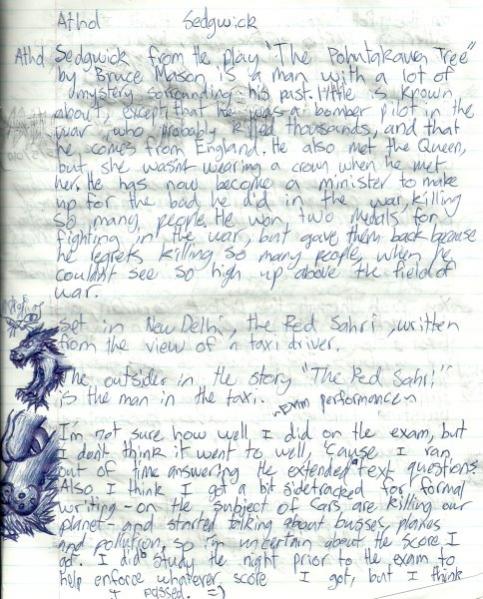 Athol Sedgwick
Athol Sedgwick from the play "The Pohutakawa Tree"
by Bruce Mason is a man with a lot of
mystery sorrounding his past. Little is known
about, except that he was a bomber pilot in the
war, who probably killed thousands, and that
he comes from England. He also met the Queen,
but she wasnt wearing a crown when he met
her. He has now become a minister to make
up for the bad he did in the war, killing
so many people. He won two medals for
fighting in the war, but gave them back because
he regrets killing so many people, when he
couldnt see so high up above the field of
war.
Set in New Delhi, the Red Sahri, written
from the view of a taxi driver.
The outsider in the story "The Red Sahri"
is the man in the taxi.
~Exam performance~
I'm not sure how well I did on the exam, but
I don't think it went to well, 'cause I ran
out of time answering the extended text questions
Also, I think I got a bit sidetracked for formal
writing - on the subject of Cars are killing our
planet - and started talking about busses, planes
and pollution, so i'm uncertain about the score I
got. I did study the night prior to the exam to
help enforce whatever score I got, but I think
I passed. =)